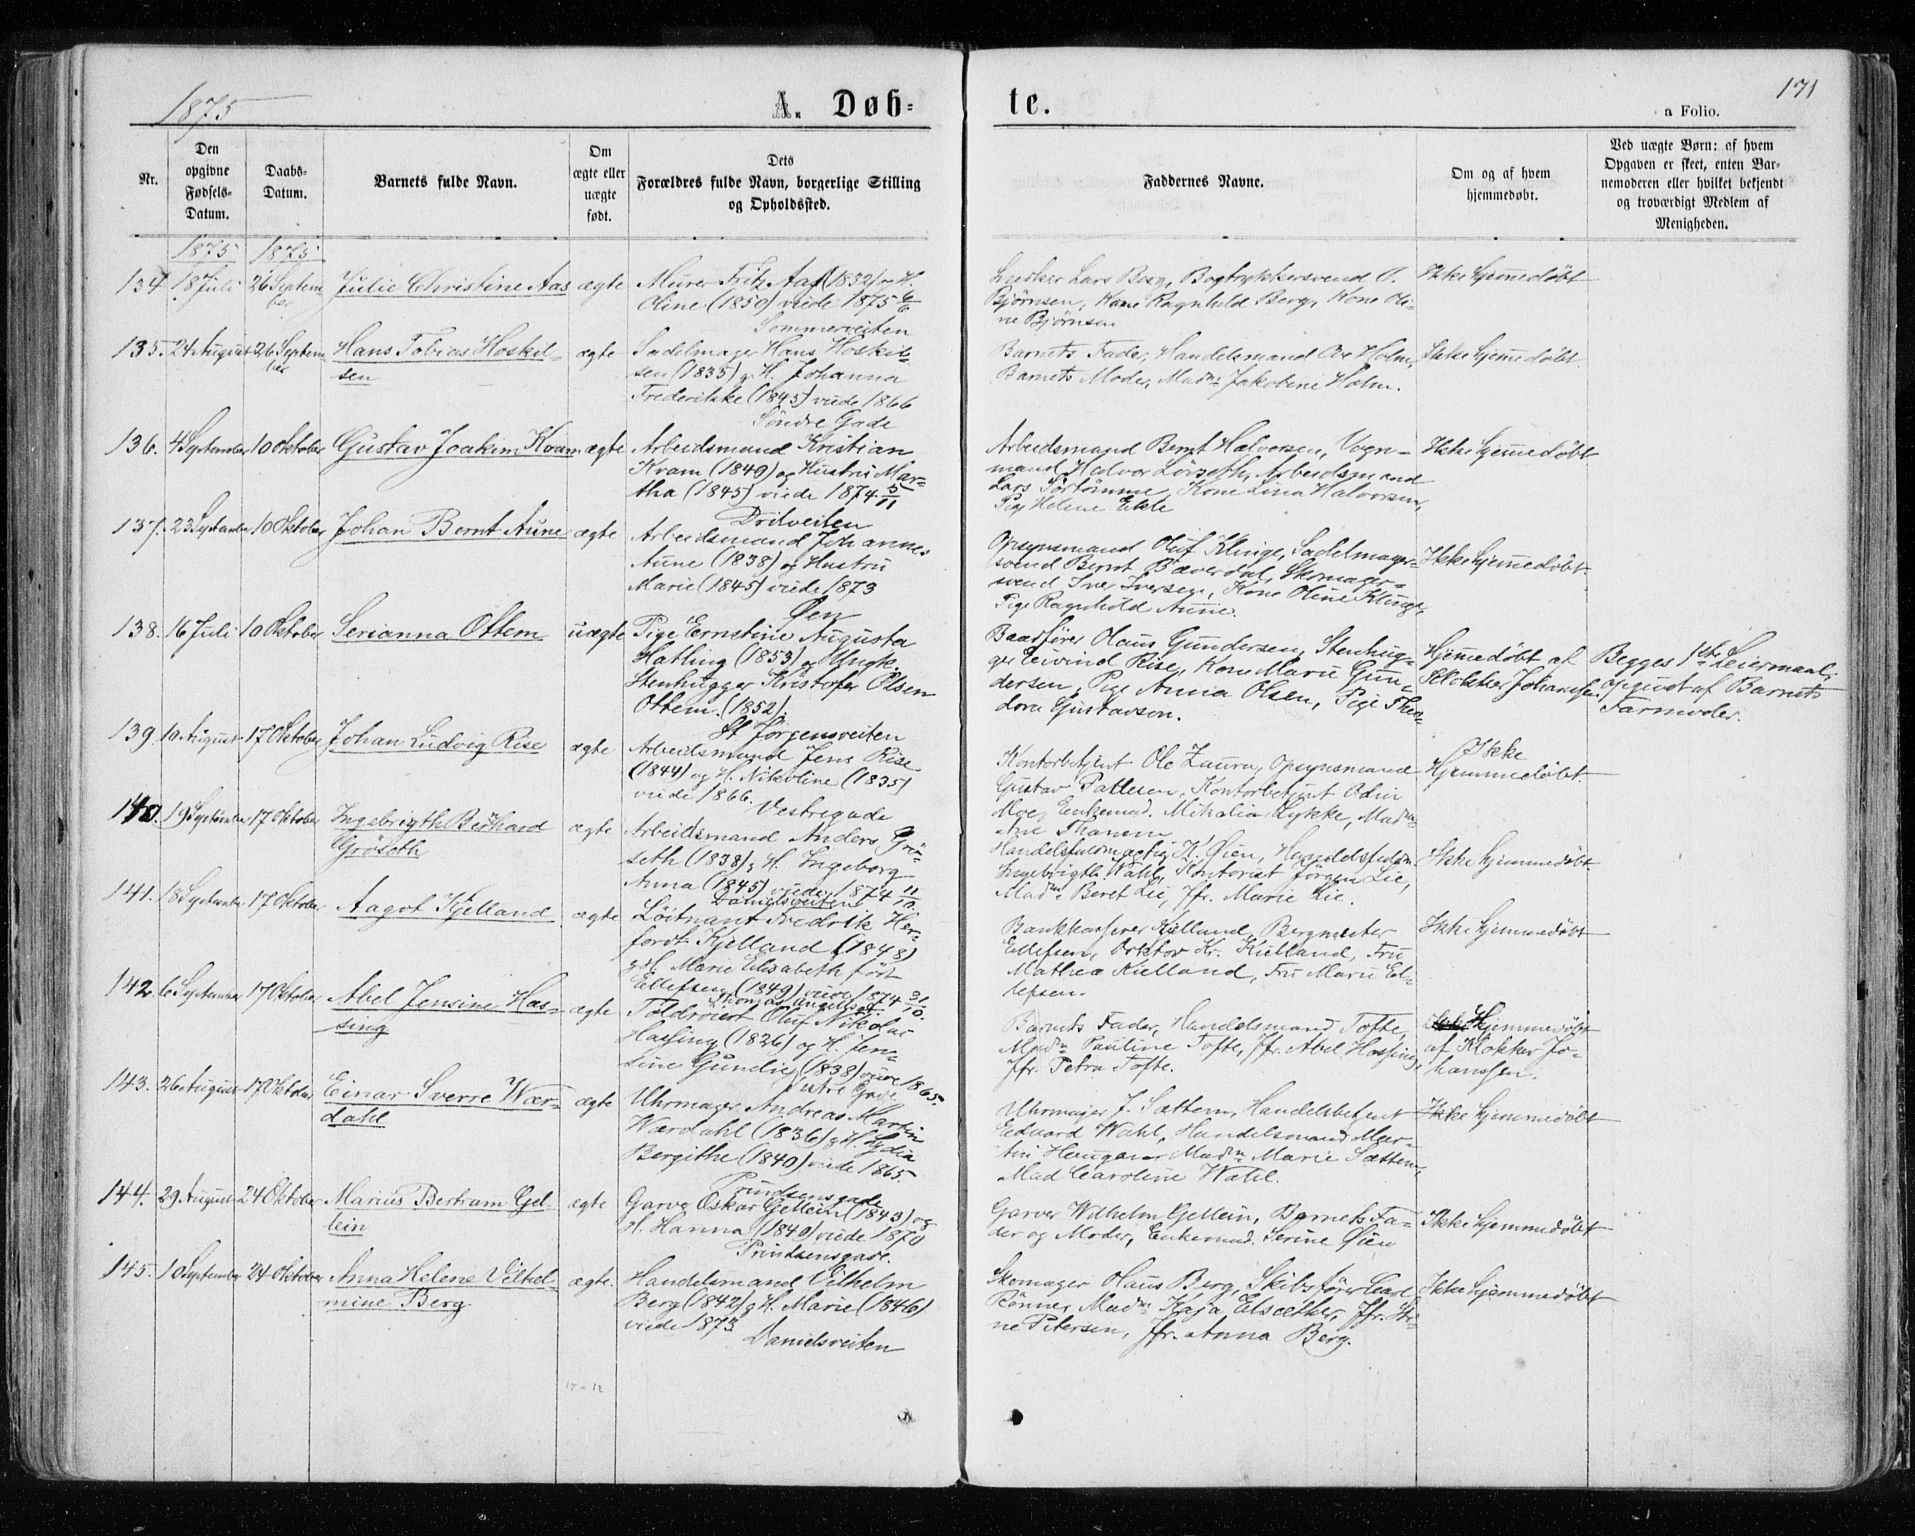 1875
A. Døb-
te.
171
a Folio.
Nr.
Den opgivne Fødsels-Datum.
Daabs-Datum.
Barnets fulde Navn.
Om ægte eller uægte født.
Dets Forældres fulde Navn, borgerlige Stilling og Opholdssted.
Faddernes Navne.
Om og af hvem hjemmedøbt.
Ved uægte Børn: af hvem Opgaven er skeet, enten Barnemoderen eller hvilket bekjendt og troværdigt Medlem af Menigheden.
1875 1875
134 18 Juli 26 Septem-
ber
Julie Christine Aas
ægte
Murer Fritz Aas (1852) og H.
Oline (1850) viede 1875 6/6
Sommerveiten
Lars Berg, Bogtrykkersvend O.
Bjørnsen, Kone Ragnhild Berg, Kone Oli-
ne Bjørnsen
Ikke hjemmedøbt
135. 24 August 26 Septem-
ber
Hans Tobias Hoskil-
sen
ægte
Sadelmager Hans Hoskil-
sen (1835) og H. Johanna
Frederikke (1845) viede 1866
Søndre Gade
Barnets Fader, Handelsmand Ove Holm,
Barnets Moder, Madm Jakobine Holm.
Ikke hjemmedøbt
136. 4 September 10 Oktober
Gustav Joakim Kvam
ægte
Arbeidsmand Kristian
Kvam (1849) og Hustru Mar-
tha (1845) viede 1874 5/11
Dritveiten
Arbeidsmand Bernt Halvorsen, Vogn-
mand Halvor Lørseth, Arbeidsmand
Lars Sørtømme, Kone Lina Halvorsen,
Pige Helene Ekle
Ikke hjemmedøbt
137. 23 September 10 Oktober
Johan Bernt Aune
ægte
Arbeidsmand Johannes
Aune (1838) og Hustru
Marie (1845) viede 1873
Øen
Opsynsmand Oluf Klinge, Sadelmager-
svend Bernt Bæverdal, Skomager-
svend Iver Iversen, Kone Oline Klinge,
Pige Ragnhild Aune.
Ikke hjemmedøbt.
138. 16 Juli 10 Oktober
Serianna Ottem
uægte
Pige Ernstine Augusta
Hatling (1853) og Ungk.
Stenhugger Kristofer Olsen
Ottem (1852).
St Jørgensveiten
Baadfører Hans Gundersen, Stenhug-
ger Eivind Rise, Kone Marie Gun-
dersen, Pige Anna Olsen, Pige Theo-
dora Gustavson.
Hjemmedøbt af
Klokker Johanssen
Begges 1ste Leiermaal,
opgivet af Barnets
Farmoder.
139. 10 August 17 Oktober
Johan Ludvig Rise
ægte
Arbeidsmand Jens Rise
(1844) og H. Nikoline (1835)
viede 1866.
Vestregade
Kontorbetjent Ole Zaura, Opsynsmand
Gustav Pallesen, Kontorbetjent Odin
Moe, Enkemad. Mihalia Lykke, Madm
Ane Thanem
Ikke
hjemmedøbt.
140. 19 September 17 Oktober
Ingebrigth Bérhard
Grøseth
ægte
Arbeidsmand Anders Grø-
seth (1838) og H. Ingeborg
Anna (1845) viede 1874 11/10.
Danielsveiten
Handelsfuldmægtig K. Øien, Handelsfuldm.
Ingebrigth Wahl, Kontorist Jørgen Lie,
Madm Beret Lie, Jfr. Marie Lie.
Ikke hjemmedøbt.
141. 18 September 17 Oktober
Aagot Kjelland
ægte
Løitnant Fredrik Her-
fordt Kjelland (1848)
og H. Marie Elisabeth født
Ellefsen (1849) viede 1874 31/10.
Thomas Angells G.
Bankkasserer Kielland, Bergmester
Ellefsen, Doktor Kr. Kielland, Fru
Mathea Kielland, Fru Marie El-
lefsen.
Ikke hjemmedøbt
142. 6 September 17 Oktober
Abel Jensine Has-
sing
ægte
Toldroiert Oluf Nikolai
Hassing (1836) og H. Jen-
sine Gundine (1838) viede 1865.
Østre Gade
Barnets Fader, Handelsmand Tofte,
Madm Pauline Tofte, Jfr. Abel Hassing,
Jfr. Petra Tofte.
Hjemmedøbt
af Klokker Jo-
hanssen.
143. 26 August 17 Oktober
Einar Sverre Wær-
dahl
ægte
Uhrmager Andreas Martin
Wærdahl (1836) og H. Lydia
Bergithe (1840) viede 1865.
Prindsensgade
Uhrmager J. Sættem, Handelsbetjent
Edvard Wahl, Handelsmand Mar-
tin Haugan, Madm Marie Sættem,
Mad Caroline Wahl.
Ikke hjemmedøbt
144. 29 August 24 Oktober
Marius Bertram Gel-
lein
ægte
Garver Oskar Gellein (1843) og
H. Hanna (1840) viede 1870
Prindsensgade.
Garver Wilhelm Gellein, Barnets Fa-
der og Moder, Enkemad. Serine Øien
Ikke hjemmedøbt
145. 10 September 24 Oktober
Anna Helene Vilhel-
mine Berg
ægte.
Handelsmand Vilhelm
Berg (1842) og H. Marie (1846)
viede 1873
Danielsveiten
Skomager Hans Berg, Skibsfører Carl
Rønner, Madm Kaja Elsæther, Jfr. Sti-
ne Petersen, Jfr. Anna Berg.
Ikke hjemmedøbt